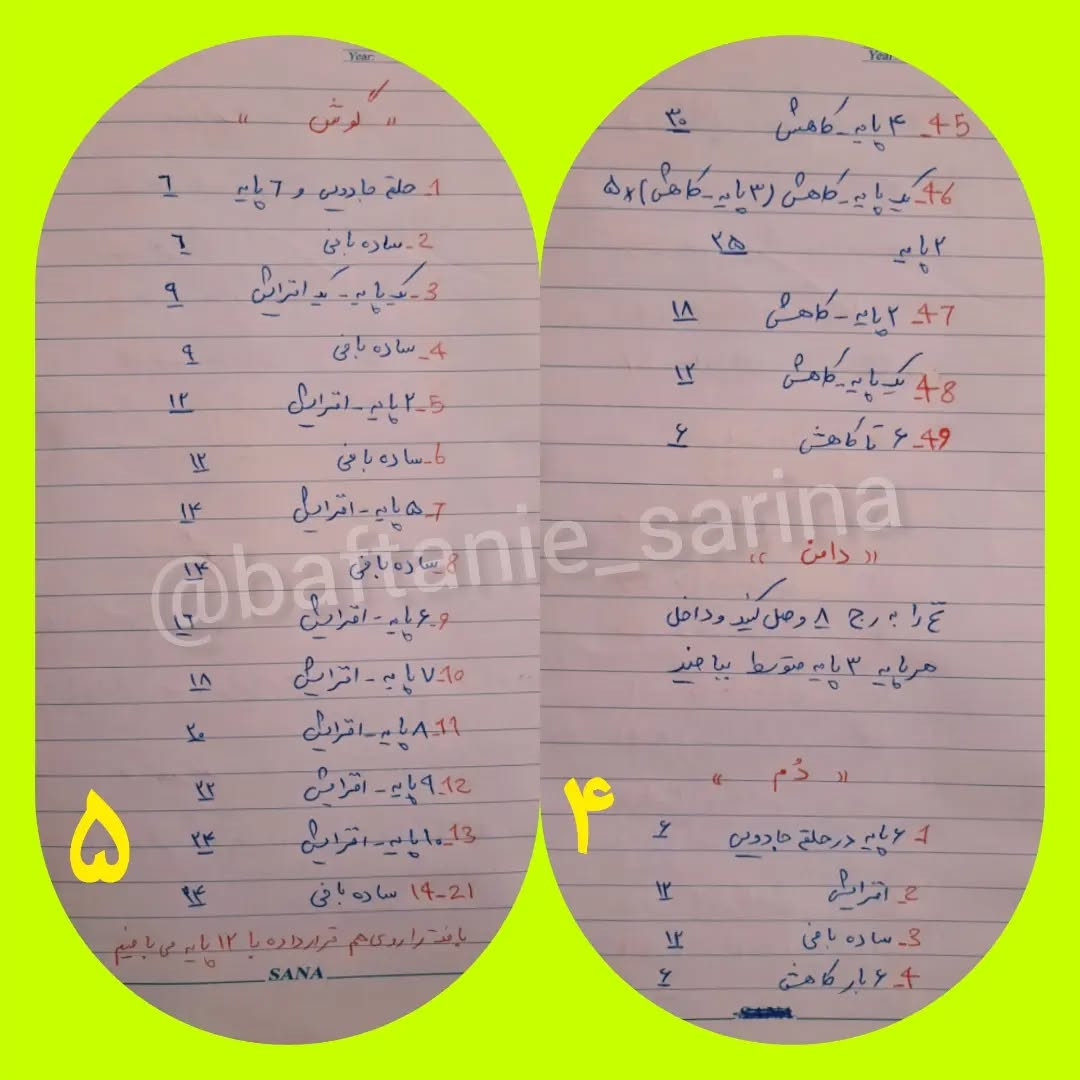 Year
45_ ۴ پایه_کاهش ۳۰
46_ یک پایه_کاهش (۳ پایه_کاهش)×۵
۲ پایه ۲۵
47_ ۲ پایه_کاهش ۱۸
48_ یک پایه_کاهش ۱۲
49_ ۶ تا کاهش ۶
«دامن»
نخ را به رج ۸ وصل کنید و داخل
هر پایه ۳ پایه متوسط ببافید
«دُم»
1_ ۶ پایه در حلقه جادویی ۶
2_ افزایش ۱۲
3_ ساده بافی ۱۲
4_ ۶ بار کاهش ۶
۴
Year:
«گوش»
1_ حلقه جادویی و ٦ پایه ٦
2_ ساده بافی ٦
3_ یک پایه_ یک افزایش ۹
4_ ساده بافی ۹
5_ ۲ پایه_ افزایش ۱۲
6_ ساده بافی ۱۲
7_ ۵ پایه_ افزایش ۱۴
8_ ساده بافی ۱۴
9_ ۶ پایه_ افزایش ۱٦
10_ ۷ پایه_ افزایش ۱۸
11_ ۸ پایه_ افزایش ۲۰
12_ ۹ پایه_ افزایش ۲۲
13_ ۱۰ پایه_ افزایش ۲۴
14-21 ساده بافی ۲۴
بافت را روی هم قرار داده با ۱۲ پایه می بافیم
SANA
۵
@baftanie_sarina